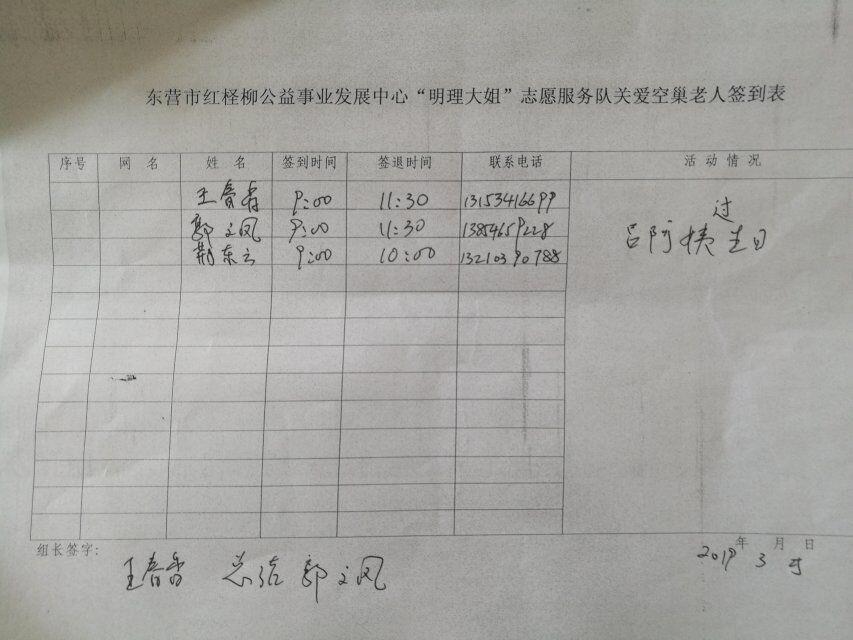 东营市红柽柳公益事业发展中心“明理大姐”志愿服务队关爱空巢老人签到表
序号 网 名 姓 名 签到时间 签退时间 联系电话 活 动 情 况
王春香 9:00 11:30 13153416699
郭文凤 9:00 11:30 13854659228
荆东云 9:00 10:00 13210390788
过
吕阿姨生日
组长签字:
王春香 总结 郭文凤
年 月 日
2019 3